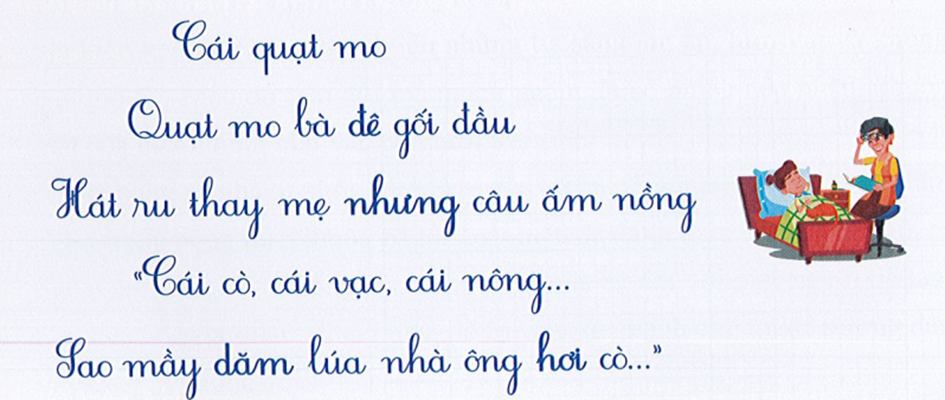 Cái quạt mo
Quạt mo bà đê gối đầu
Hát ru thay mẹ nhưng câu ấm nồng
“Cái cò, cái vạc, cái nông...
Sao mầy dăm lúa nhà ông hơi cò...”